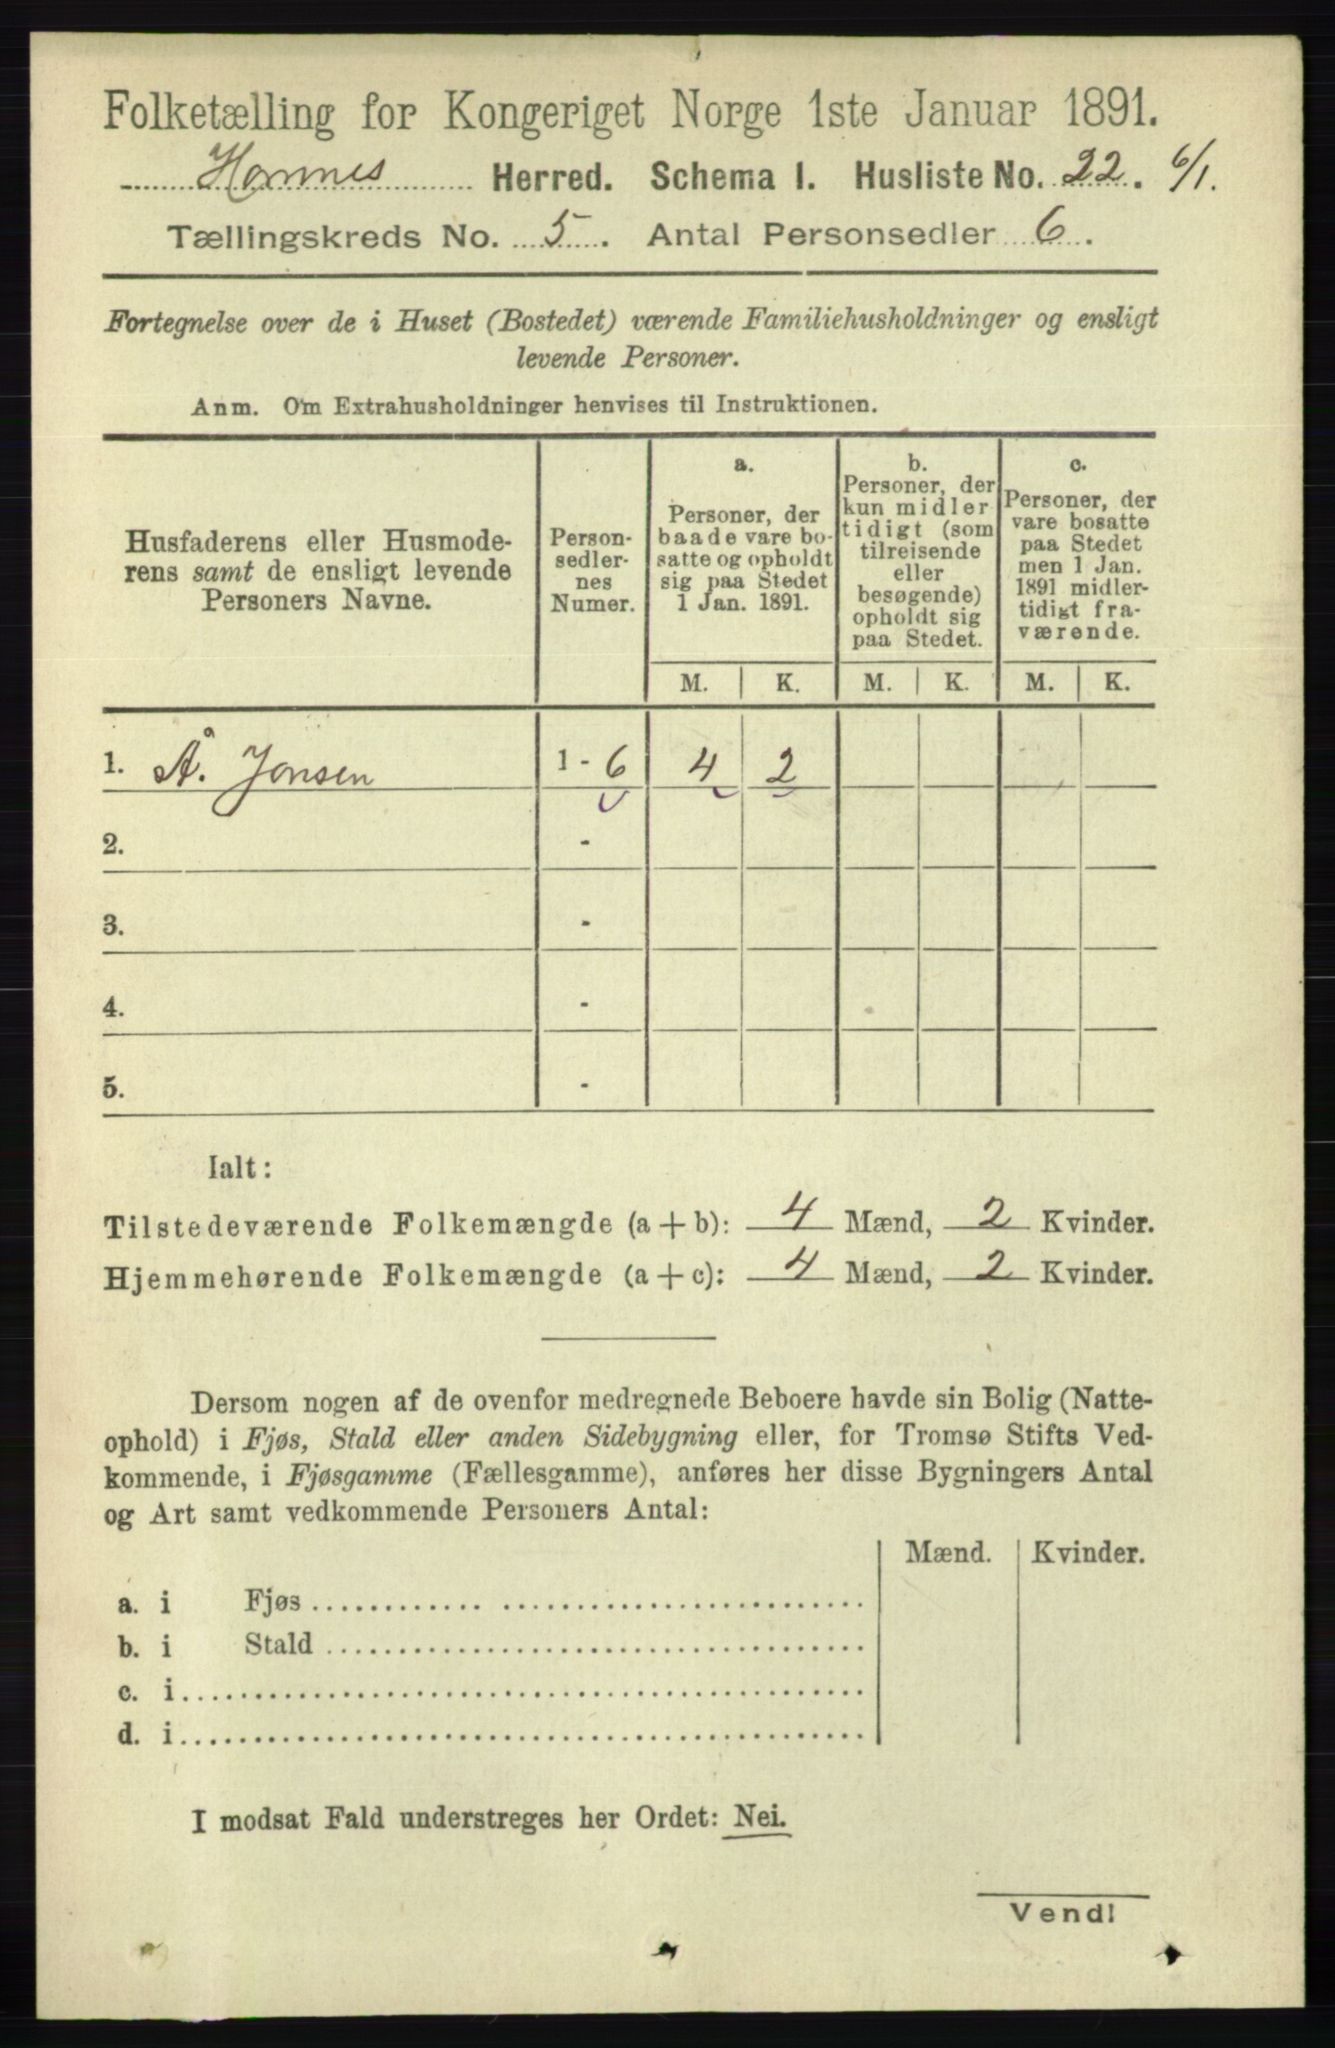 Folketælling for Kongeriget Norge 1ste Januar 1891.
Hornnes Herred. Schema I. Husliste No. 22. 6/1.
Tællingskreds No. 5. Antal Personsedler 6.
Fortegnelse over de i Huset (Bostedet) værende Familiehusholdninger og ensligt
levende Personer.
Anm. Om Extrahusholdninger henvises til Instruktionen.
Husfaderens eller Husmode-
rens samt de ensligt levende
Personers Navne.
Person-
sedler-
nes
Numer.
a.
Personer, der
baade vare bo-
satte og opholdt
sig paa Stedet
1 Jan. 1891.
b.
Personer, der
kun midler
tidigt (som
tilreisende
eller
besøgende)
opholdt sig
paa Stedet.
c.
Personer, der
vare bosatte
paa Stedet
men 1 Jan.
1891 midler-
tidigt fra-
værende.
M. K. M. K. M. K.
1. Å. Jonsen 1 - 6 4 2
2. -
3. -
4. -
5. -
Ialt:
Tilstedeværende Folkemængde (a + b): 4 Mænd, 2 Kvinder.
Hjemmehørende Folkemængde (a + c): 4 Mænd, 2 Kvinder.
Dersom nogen af de ovenfor medregnede Beboere havde sin Bolig (Natte-
ophold) i Fjøs, Stald eller anden Sidebygning eller, for Tromsø Stifts Ved-
kommende, i Fjøsgamme (Fællesgamme), anføres her disse Bygningers Antal
og Art samt vedkommende Personers Antal:
Mænd. Kvinder.
a. i Fjøs
b. i Stald
c. i
d. i
I modsat Fald understreges her Ordet: Nei.
Vend!